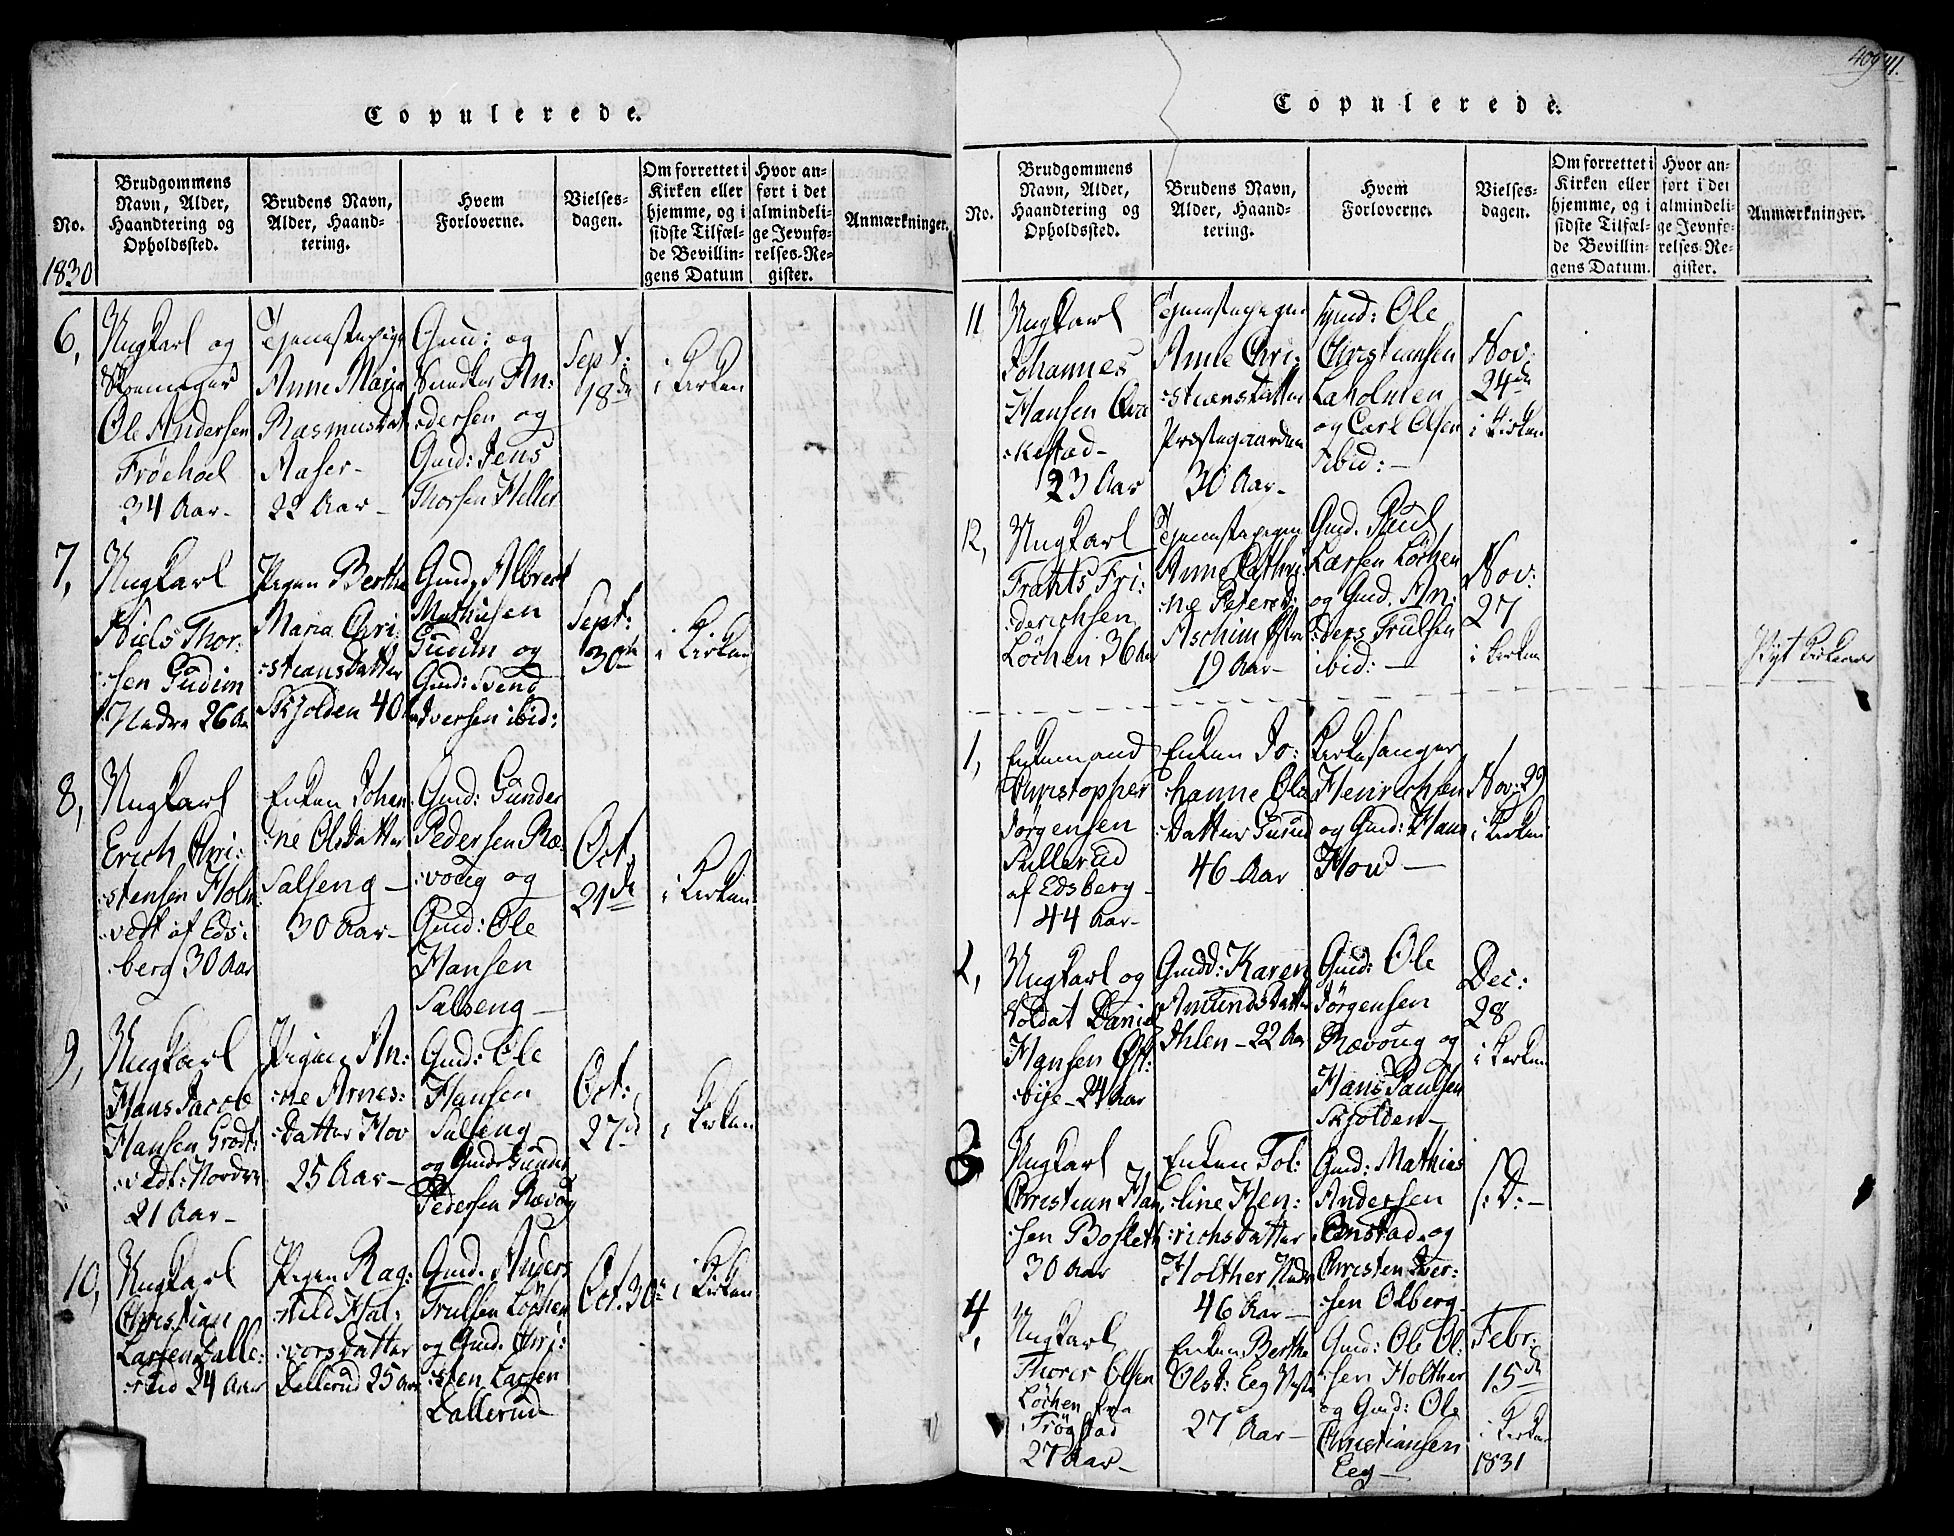 Copulerede.
No.
1830
Brudgommens
Navn, Alder,
Haandtering og
Opholdssted.
Brudens Navn,
Alder, Haand-
tering.
Hvem
Forloverne.
Vielses-
dagen.
Om forrettet i
Kirken eller
hjemme, og i
sidste Tilfæl-
de Bevillin-
gens Datum
Hvor an-
ført i det
almindeli-
ge Jevnfø-
relses-Re-
gister.
Anmærkninger.
6,
Ungkarl og
Ole Andersen
Frøehoel
34 Aar-
Tjenestepige
Anne Maja
Rasmusdat
Aaser-
22 Aar-
Gmd: og
Snedker An-
:dersen og
Gmd: Jens
Thorsen Heller
Sept:
18de
i Kirken
7,
Ungkarl
Niels Thor:
:sen Gudim
Nedre 26 Aar
Pigen Berthe
Maria Chri:
:stiansdatter
Skjolden 40
Gmd, Albrect
Mathisen
Gudim og
Gmd: Svend
Iversen ibid:
Sept:
30te
i Kirken
8,
Ungkarl
Erich Chri:
:stensen Holm
:vedt af Eds:
:berg 30 Aar
Enken Johan
:ne Olsdatter
Salseng -
30 Aar-
Gmd: Gunder
Pedersen Ræ:
:voug og
Gmd: Ole
Hansen
Salseng-
Oct,
21de
i Kirken
9,
Ungkarl
Hans Jacob
Hansen Grødt:
:vedt: Nordre
21 Aar-
Pigen An:
:ne Arnes:
:datter Hov
25 Aar-
Gmd: Ole
Hansen
Salseng
og Gmd: Gunder
Pedersen Rævoug
Oct:
27de
i Kirken
10,
Ungkarl
Christian
Larsen Dalle:
:rud 24 Aar
Pigen Rag:
:nild Hal:
:vorsdatter
Dallerud 25 Aar
Gmd. Anders
Trulsen Løchen
og Gmd. Chri:
:sten Larsen
Dallerud
Oct. 30te
i Kirken
409
Copulerede.
No.
Brudgommens
Navn, Alder,
Haandtering og
Opholdssted.
Brudens Navn,
Alder, Haand-
tering.
Hvem
Forloverne.
Vielses-
dagen.
Om forrettet i
Kirken eller
hjemme, og i
sidste Tilfæl-
de Bevillin-
gens Datum.
Hvor an-
ført i det
almindeli-
ge Jevnfø-
relses-Re-
gister.
Anmærkninger.
11
Ungkarl
Johannes
Hansen
23 Aar
Tjenestepigen
Anne Chri:
:stiansdatter
Præstegaarden
30 Aar-
Gmd: Ole
Christiansen
Laholmen
og Carl Olsen
ibid:-
Nov:
24de
i Kirken
12,
Ungkarl
Frants Fri:
:derichsen
Løchen 36 Aar
Tjenestepigen
Anne Cathri:
:ne Petersd:
Aschim Østre
19 Aar-
Gmd. Poul
Larsen Løchen
og Gmd. An:
:ders Trulsen
ibid: -
Nov:
27
i Kirken
1,
Enkemand
Christopher
Jørgensen
Sullerud
af Edsberg-
44 Aar-
Enken Jo:
:hanne Ols
:datter Gusud
46 Aar
Kirkesanger
Henrichsen
og Gmd: Hans
Hou -
Nov: 29
i Kirken
2,
Ungkarl og
Soldat Daniel
Hansen Øst:
:bye- 24 Aar
Gmdd: Karen
Amundsdatter
Ihlen- 22 Aar
Gmd: Ole
Jørgensen
Rævoug og
Hans Paulsen
Skjolden-
Dec:
28
i Kirken
3
Ungkarl
Christian Han
:sen Bosleth
30 Aar
Enken Tol:
:line Hen:
:richsdatter
Holther Nedre
46 Aar-
Gmd: Mathias
Andersen
Onstad og
Christen Iver:
:sen Olberg
/:D:-
4,
Ungkarl
Thorer Olsen
Løchen fra
Trögstad
27 Aar-
Enken Berthe
Olsd: Eeg
27 Aar-
Gmd: Ole Ol:
:sen Holther
og Gmd: Ole
Christiansen
Eeg-
Febr:
15de
i Kirken
1831